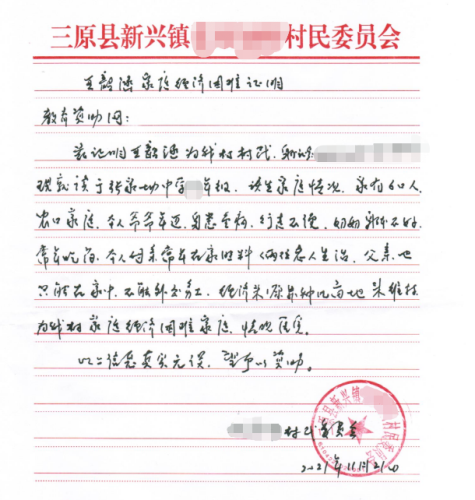 三原县新兴镇 村民委员会
家庭经济困难证明
教育资助网:
兹证明王 涵为我村村民,身份
现就读于张家坳中学 年级,该生家庭情况,家有6口人
农口家庭,本人爷爷年迈,身患 ,行走不便,奶奶身体不好
常年吃药,本人母亲常年在家照料 老人生活,父亲也
只能在家中,不能外出务工,经济来源 种几亩地来维持
为我村家庭经济困难家庭,情况属实。
以上信息真实无误,望予以资助。
村民委员会
2021年11月21日